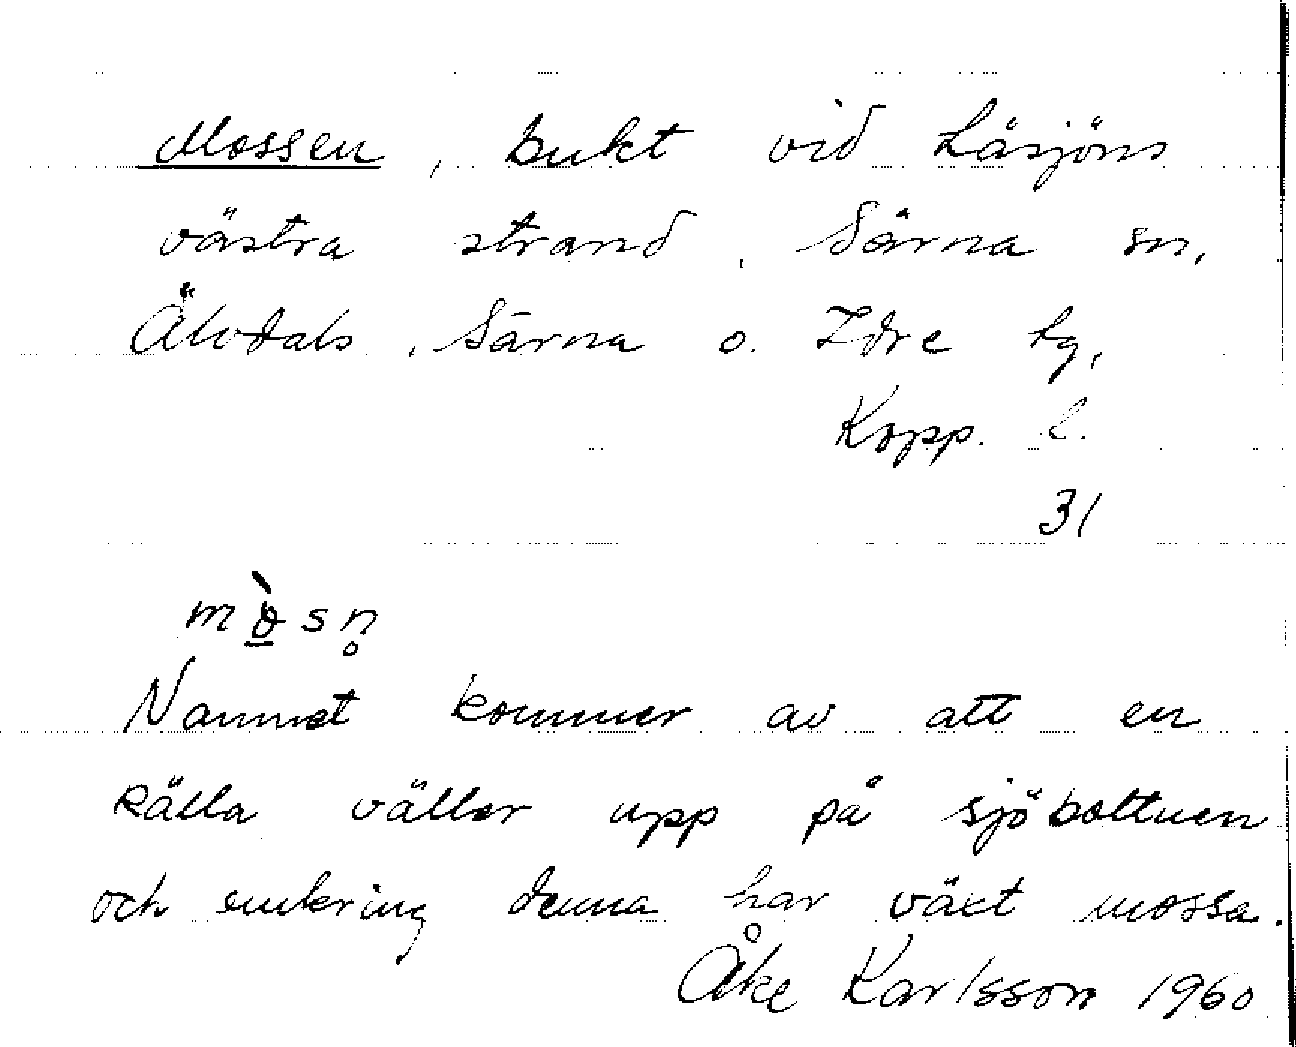 Mossen, bukt vid Låsjöns
västra strand, Särna sn,
Älvdals, Särna o. Idre tg,
Kopp. l.
31
Namnet kommer av att en
källa väller upp på sjöbottnen
och omkring denna har växt mossa.
Åke Karlsson 1960